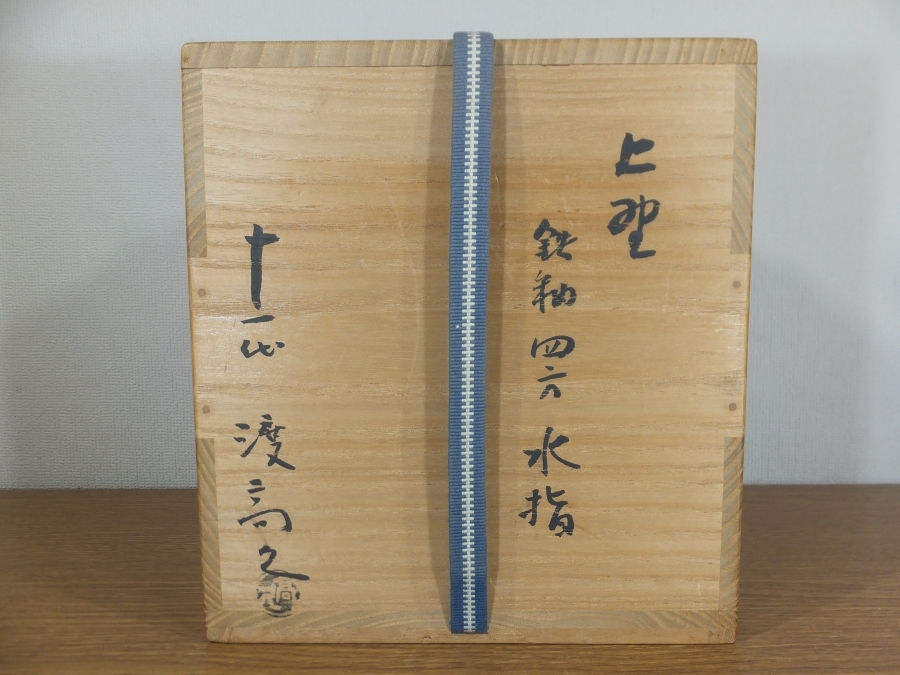 上野
鉄釉 四方 水指
十一代 渡 高久